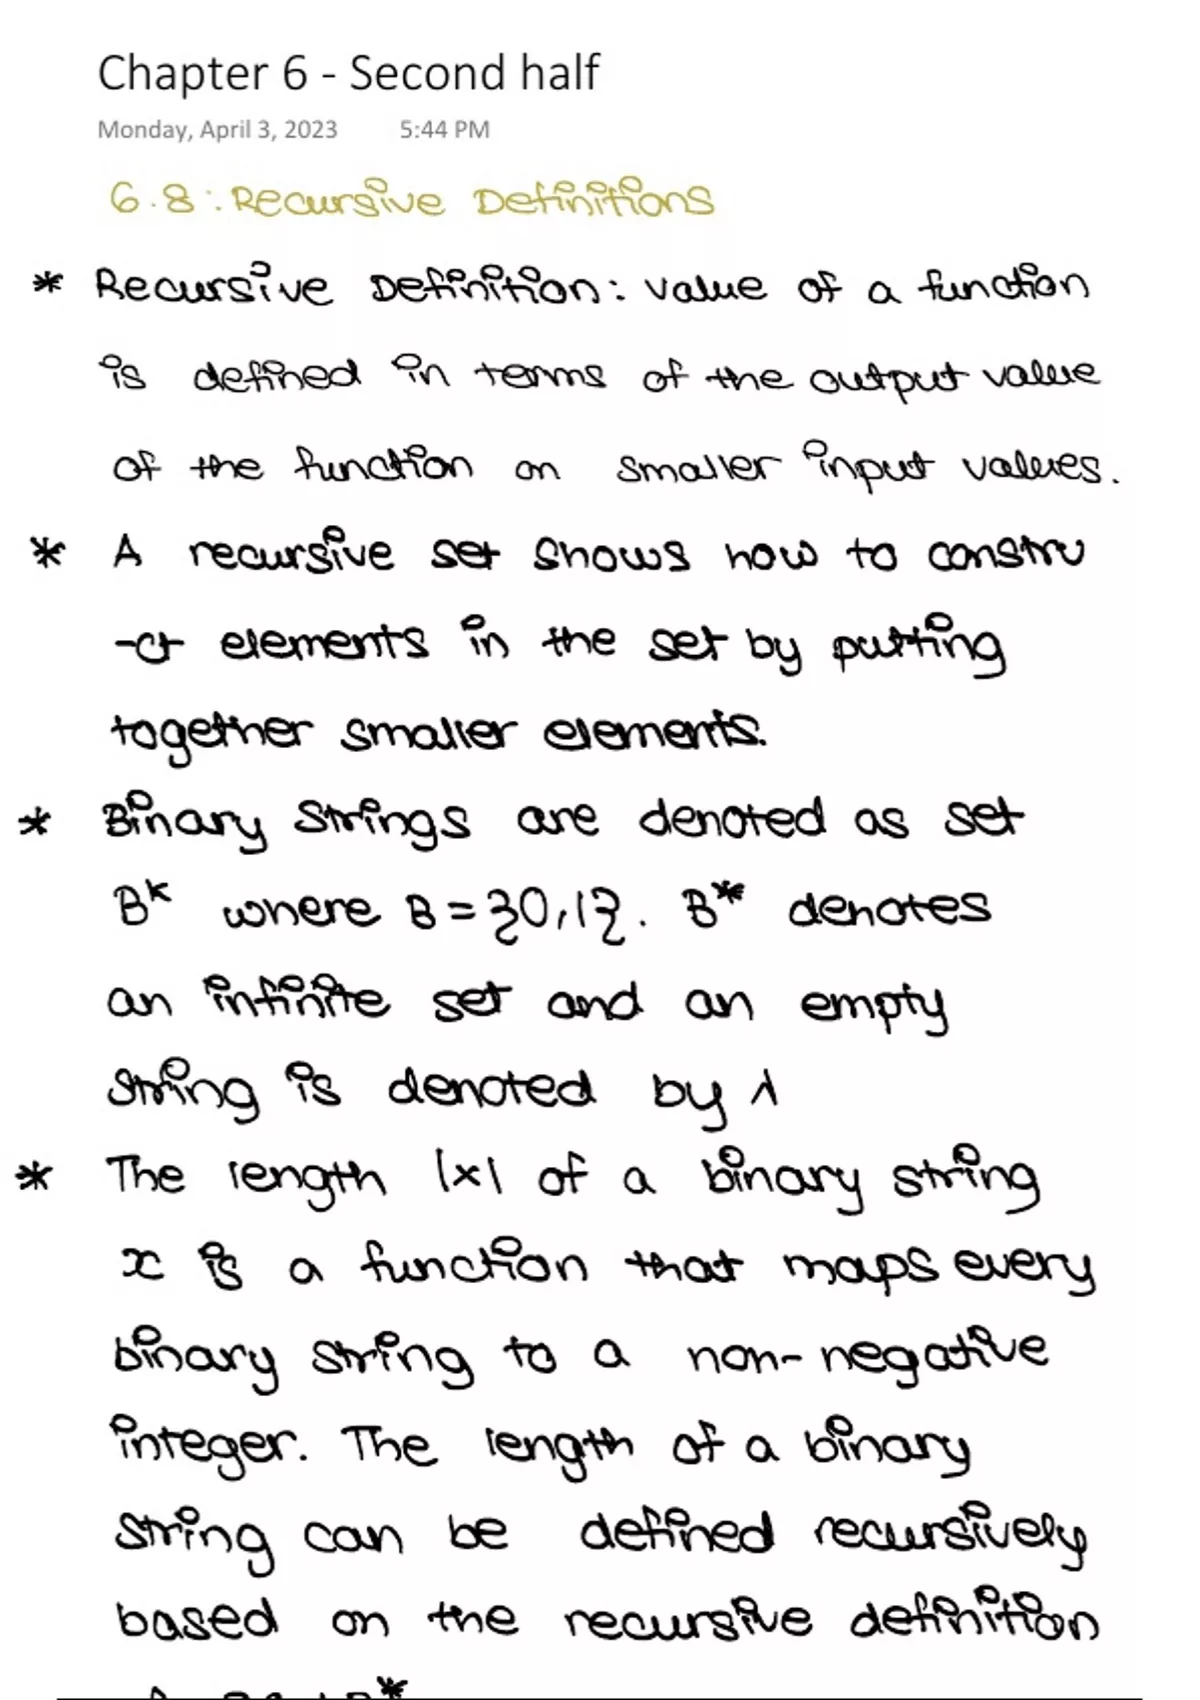 Chapter 6 - Second half
Monday, April 3, 2023 5:44 PM
6.8: Recursive Definitions
* Recursive Definition: value of a function
is defined in terms of the output value
of the function on smaller input values.
* A recursive set shows how to constru
-ct elements in the set by putting
together smaller elements.
* Binary strings are denoted as set
B^k where B = {0,1}. B* denotes
an infinite set and an empty
string is denoted by λ
* The length |x| of a binary string
x is a function that maps every
binary string to a non-negative
integer. The length of a binary
string can be defined recursively
based on the recursive definition